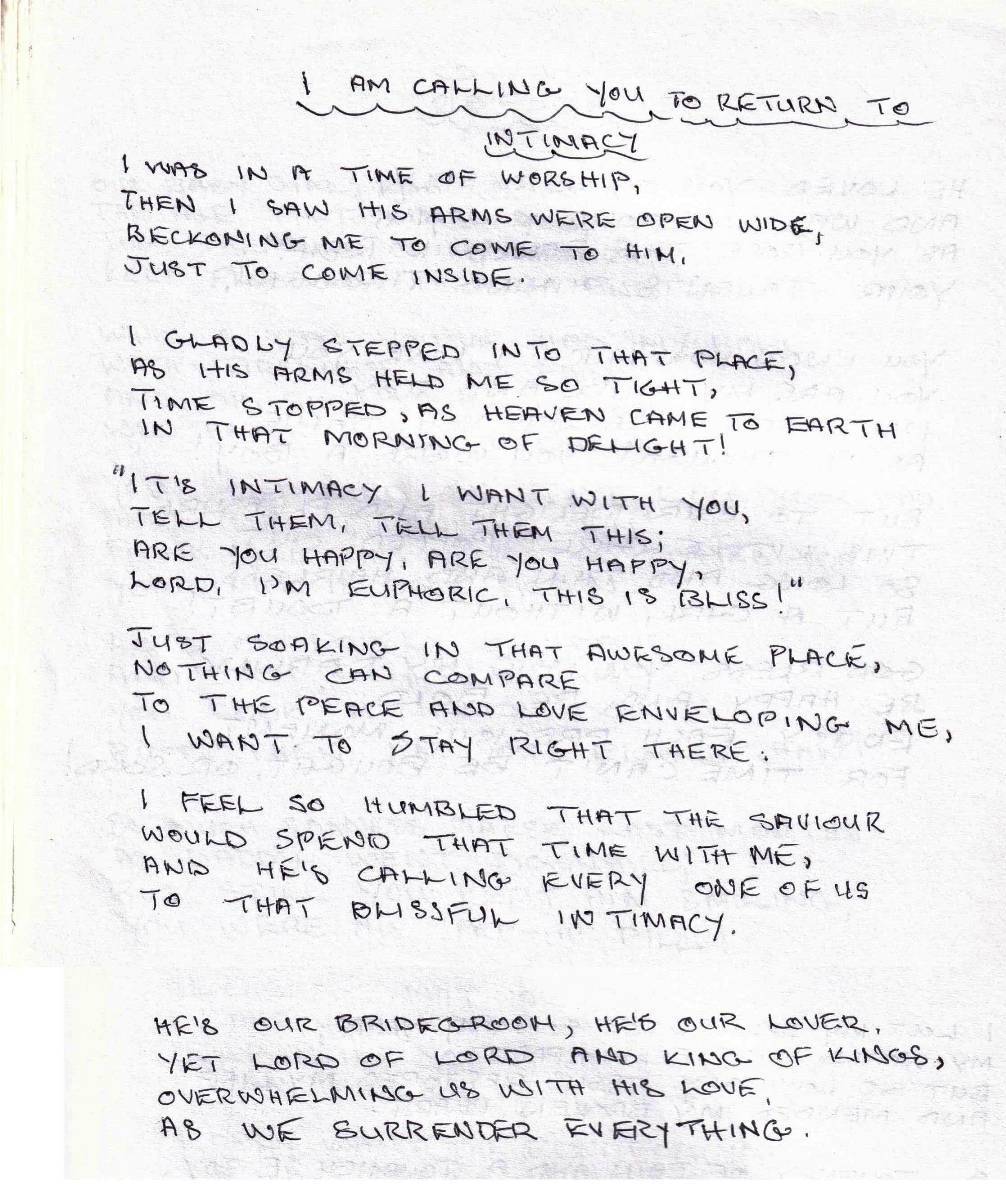 I AM CALLING YOU TO RETURN TO
INTIMACY
I WAS IN A TIME OF WORSHIP,
THEN I SAW HIS ARMS WERE OPEN WIDE,
BECKONING ME TO COME TO HIM,
JUST TO COME INSIDE.
I GLADLY STEPPED INTO THAT PLACE,
AS HIS ARMS HELD ME SO TIGHT,
TIME STOPPED, AS HEAVEN CAME TO EARTH
IN THAT MORNING OF DELIGHT!
"IT'S INTIMACY I WANT WITH YOU,
TELL THEM, TELL THEM THIS;
ARE YOU HAPPY, ARE YOU HAPPY,
LORD, I'M EUPHORIC, THIS IS BLISS!"
JUST SOAKING IN THAT AWESOME PLACE,
NOTHING CAN COMPARE
TO THE PEACE AND LOVE ENVELOPING ME,
I WANT TO STAY RIGHT THERE.
I FEEL SO HUMBLED THAT THE SAVIOUR
WOULD SPEND THAT TIME WITH ME,
AND HE'S CALLING EVERY ONE OF US
TO THAT BLISSFUL INTIMACY.
HE'S OUR BRIDEGROOM, HE'S OUR LOVER,
YET LORD OF LORD AND KING OF KINGS,
OVERWHELMING US WITH HIS LOVE,
AS WE SURRENDER EVERYTHING.